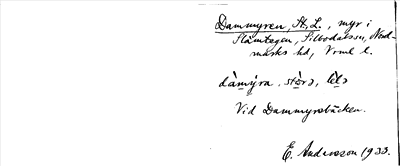 Dammyren, St., L., myr i
Slåmtegen, Silbodalssn, Nord-
marks hd, Vrml l.
dàmýra, stòra, lìla
Vid Dammyrsbäcken.
E. Andersson 1933.